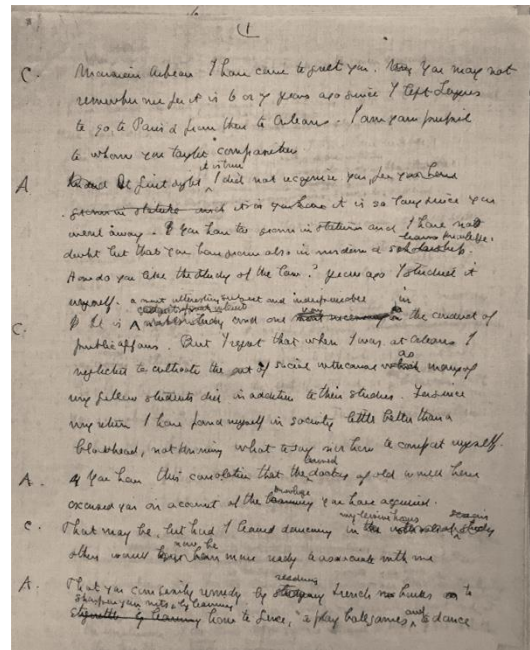 (1
C. Monsieur Arbeau I have come to greet you. You may not
remember me for it is 6 or 7 years ago since I left Langres
to go to Paris & from there to Orleans. I am your pupil
to whom you taught computation
A At first sight it is true I did not recognise you, for you have
grown in stature and it is so long since you
were away. You have grown in stature and I have no
doubt but that you have grown also in wisdom & learning knowledge.
How do you like the study of the Law? years ago I studied it
myself. a most interesting subject and indispensable in
C. It is a study and one most necessary in the conduct of
public affairs. But I regret that when I was at Orleans I
neglected to cultivate the art of social intercourse as many of
my fellow students did in addition to their studies. For since
my return I have found myself in society little better than a
blockhead, not knowing what to say nor how to comport myself.
A. You have this consolation that the learned doctors of old would have
excused you on account of the knowledge you have acquired.
C. That may be, but had I learned dancing in my leisure hours
others would now be more ready to associate with me
A. That you can easily remedy by reading French books to
sharpen your wits & by learning
how to fence, & play ball games and to dance